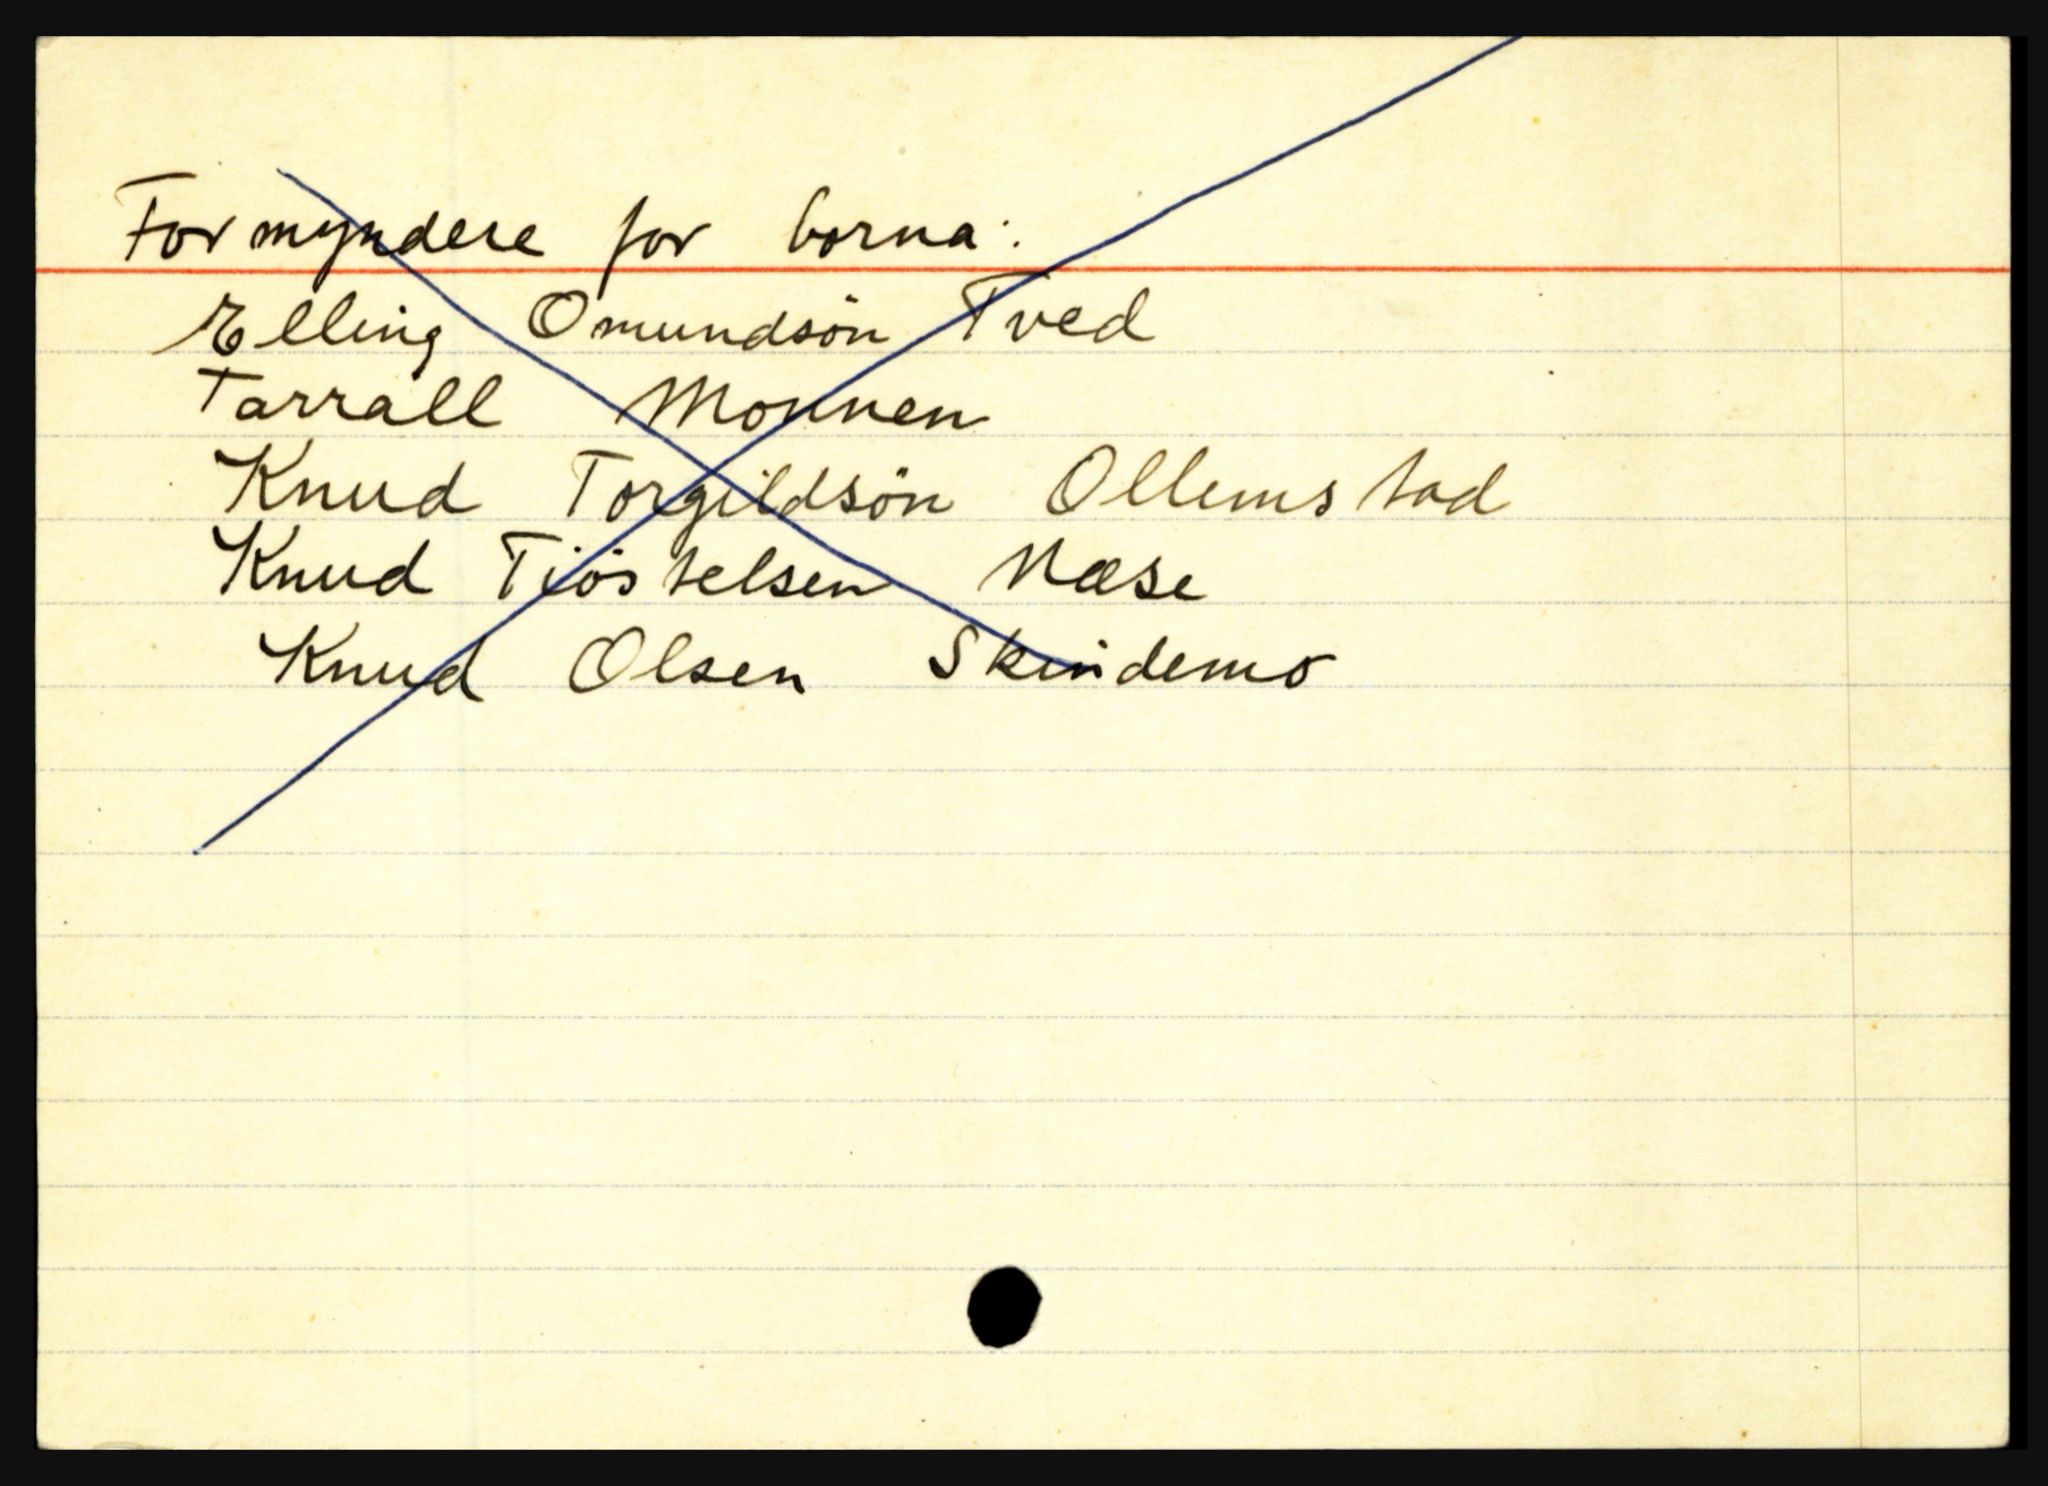 Formyndere for borna:
Elling Omundsön Tved
Tarrall Monnen
Knud Torgildsön Ollemstad
Knud Tiöstelsen Næse
Knud Olsen Skindemo